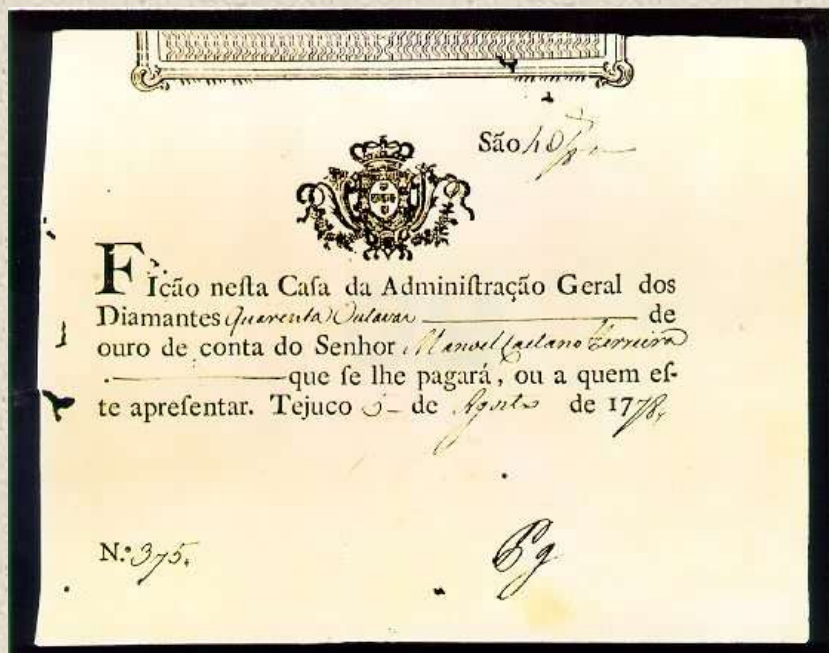 São 40/8
FIcão neſta Caſa da Adminiſtração Geral dos
Diamantes Quarenta Outavas de
ouro de conta do Senhor Manoel Caetano Ferreira
que ſe lhe pagará, ou a quem eſ-
te apreſentar. Tejuco 5 de Agosto de 1778,
N.º 375.
Pg